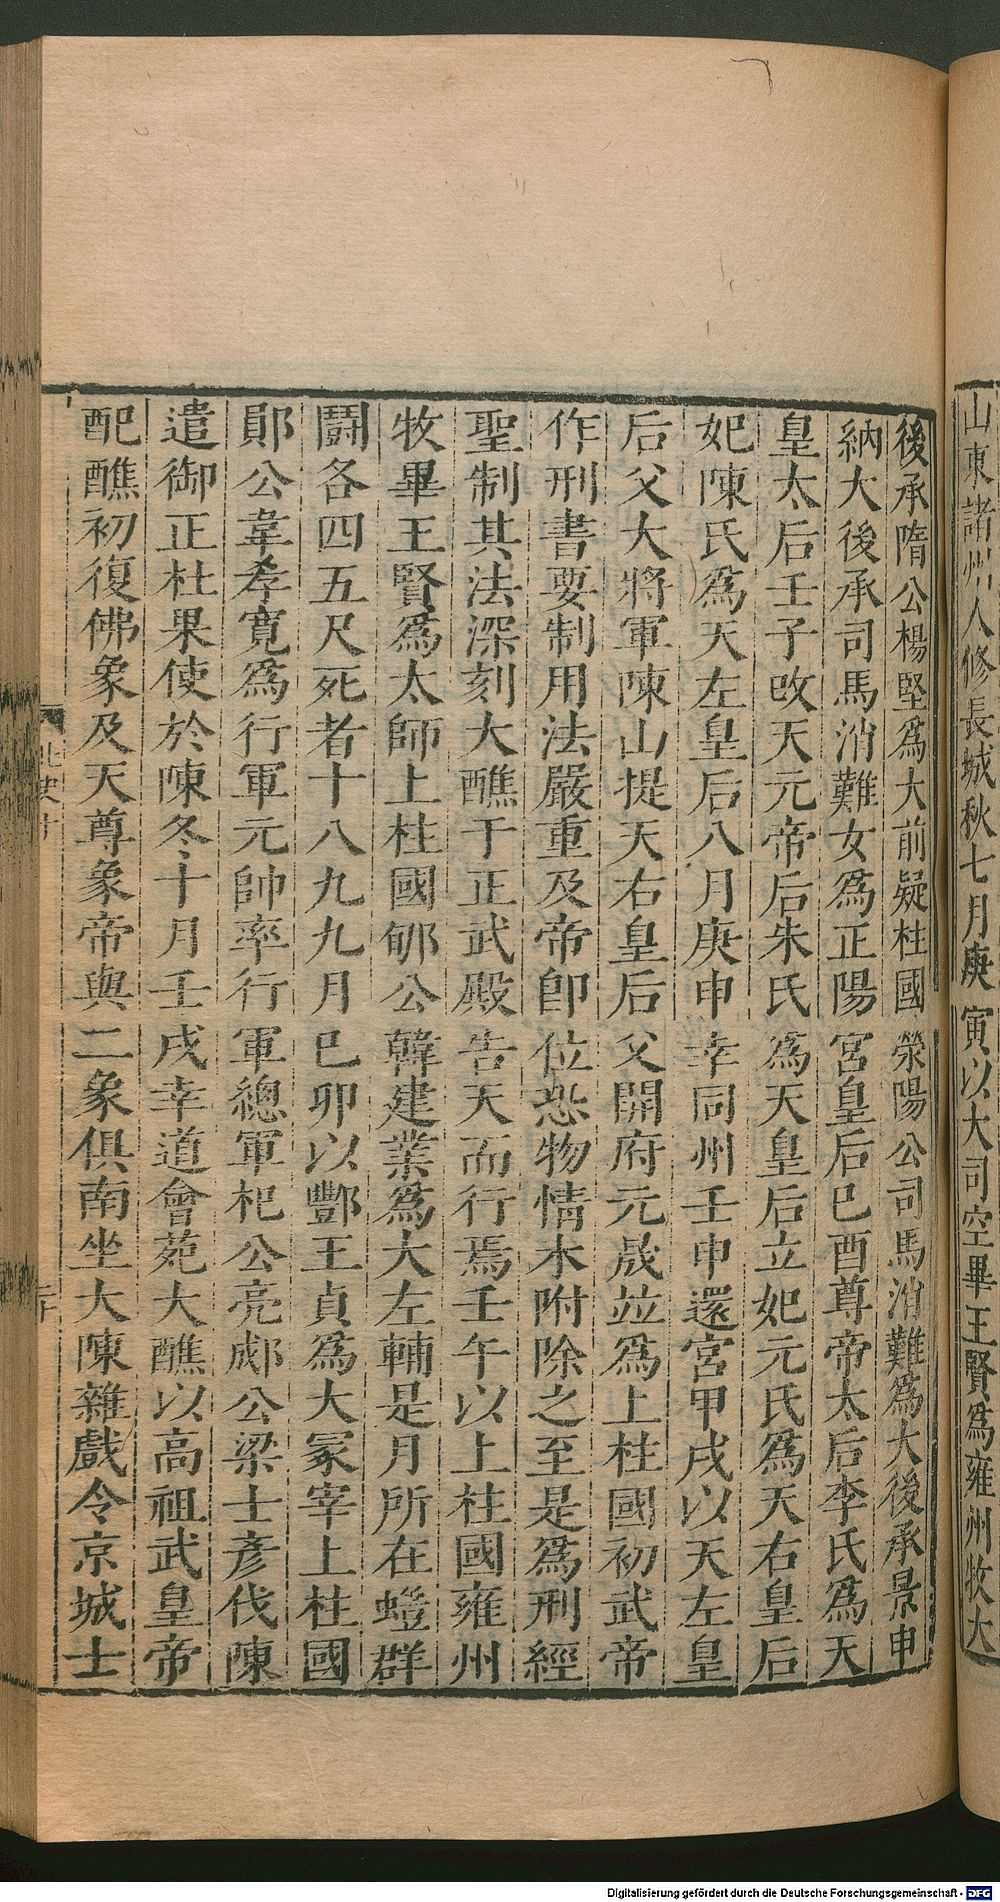 山東諸州人修長城秋七月庚寅以大司空畢王賢爲雍州牧大
後承隋公楊堅爲大前疑柱國滎陽公司馬消難爲大後承景申
納大後承司馬消難女爲正陽宮皇后巳酉尊帝太后李氏爲天
皇太后壬子改天元帝后朱氏爲天皇后立妃元氏爲天右皇后
妃陳氏爲天左皇后八月庚申幸同州壬申還宮甲戌以天左皇
后父大將軍陳山提天右皇后父開府元晟竝爲上柱國初武帝
作刑書要制用法嚴重及帝卽位恐物情未附除之至是爲刑經
聖制其法深刻大醮于正武殿告天而行焉壬午以上柱國雍州
牧畢王賢爲太師上柱國郇公韓建業爲大左輔是月所在螘群
鬪各四五尺死者十八九九月巳卯以酆王貞爲大冢宰上柱國
鄖公韋孝寬爲行軍元帥率行軍總軍杞公亮郕公梁士彥伐陳
遣御正杜果使於陳冬十月壬戌幸道會苑大醮以高祖武皇帝
配醮初復佛象及天尊象帝與二象俱南坐大陳雜戲令京城士
北史十
Digitalisierung gefördert durch die Deutsche Forschungsgemeinschaft - DFG